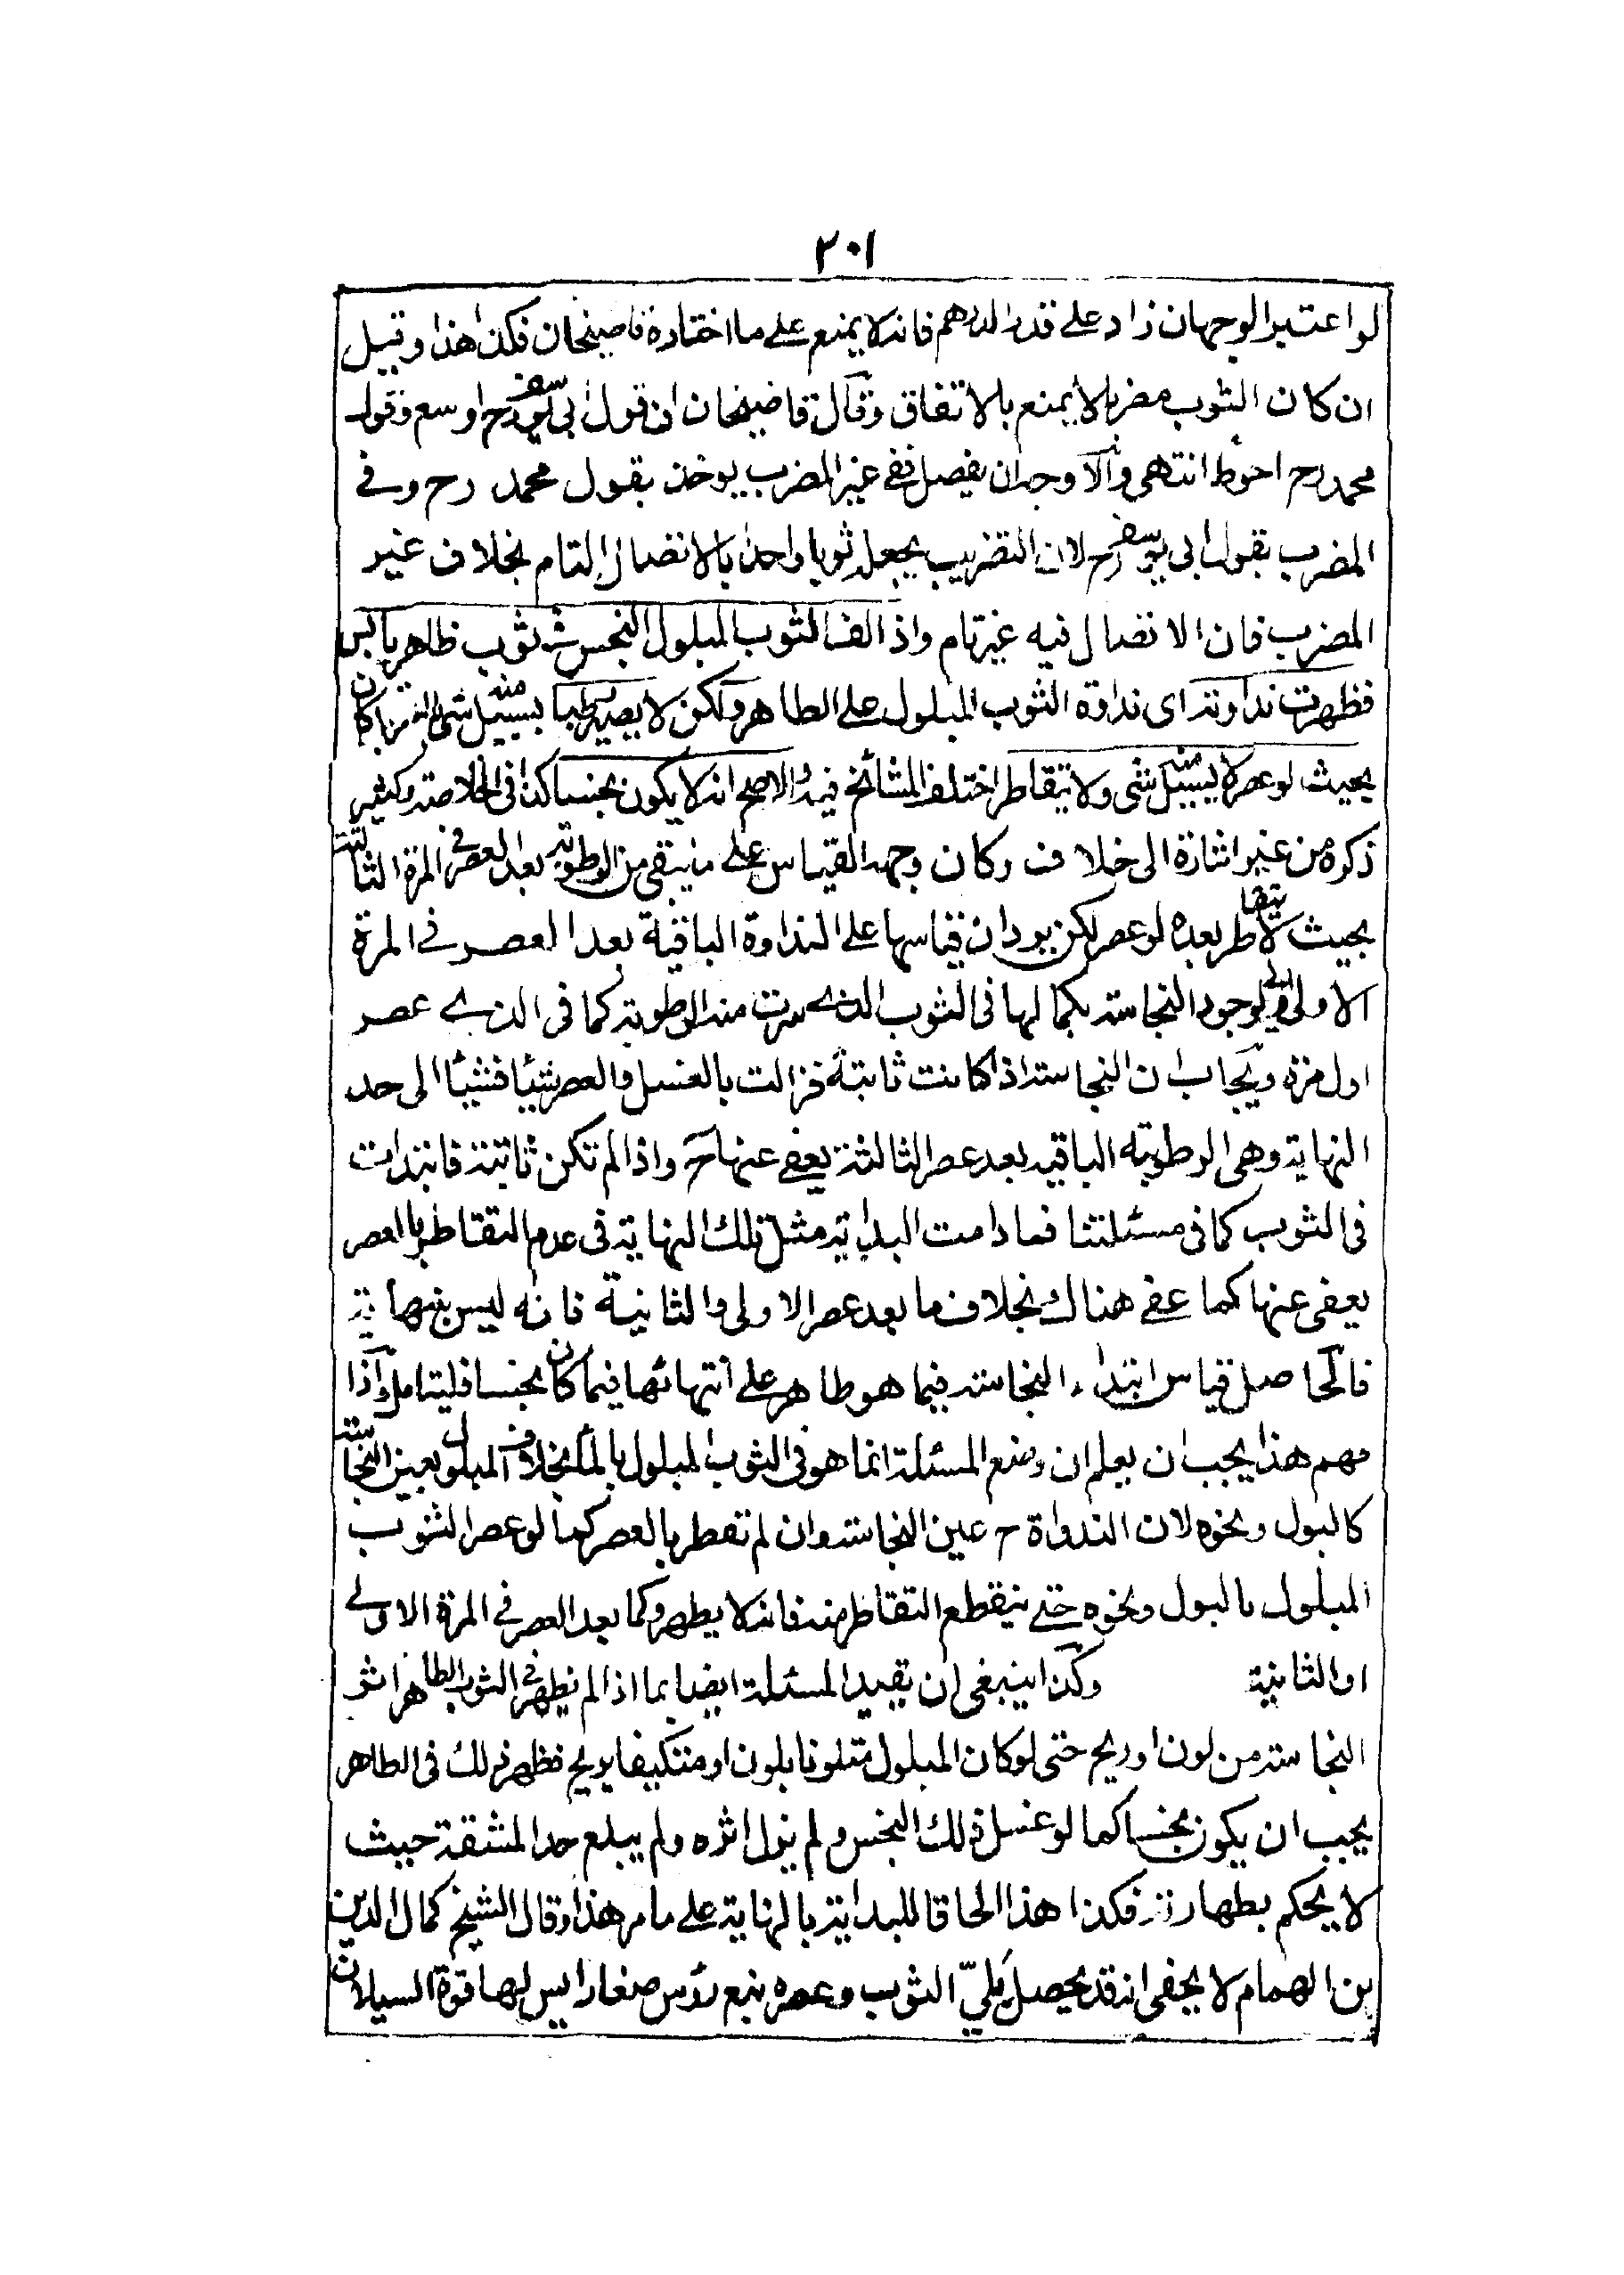 ٢٠١
لو اعتبر الوجهان زاد على قدر الدرهم فانه لا يمنع على ما اختاره قاضيخان فكذا هذا وقيل
ان كان الثوب مضربا لا يمنع بالاتفاق وقال قاضيخان ان قول ابي يوسف رح اوسع وقول
محمد رح احوط انتهى والاوجه ان يفصل ففي غير المضرب يوخذ بقول محمد رح وفي
المضرب بقول ابي يوسف رح لان التضريب يجعله ثوبا واحدا بالاتصال التام بخلاف غير
المضرب فان الاتصال فيه غير تام واذا لف الثوب المبلول النجس في ثوب طاهر يابس
فظهرت نداوته اي نداوة الثوب المبلول على الطاهر ولكن لا يصير رطبا يسيل منه شئ كان
بحيث لو عصر لا يسيل منه شئ ولا يتقاطر اختلف المشائخ فيه والاصح انه لا يكون نجسا كذا في الخلاصة وكثير
ذكروه من غير اشارة الى خلاف وكان وجهه القياس على ما يبقى من الرطوبة بعد العصر في المرة الثالثة
بحيث لا يتقاطر بعده لو عصر لكن يرد ان قياسها على النداوة الباقية بعد العصر في المرة
الاولى اولى لوجود النجاسة بكمالها في الثوب الذي سرت منه الرطوبة كما في الذي عصر
اول مرة ويجاب بان النجاسة اذا كانت ثابتة فزالت بالغسل والعصر شيئا فشيئا الى حد
النهاية وهي الرطوبة الباقية بعد عصر الثالثة يعفى عنها ح واذا لم تكن ثابتة فابتدات
في الثوب كما في مسئلتنا فما دامت البداية مثل تلك النهاية في عدم التقاطر بالعصر
يعفى عنها كما عفي هناك بخلاف ما بعد عصر الاولى والثانية فانه ليس بنهاية
فالحاصل قياس ابتداء النجاسة فيما هو طاهر على انتهائها فيما كان نجسا فليتامل واذا
فهم هذا يجب ان يعلم ان وضع المسئلة انما هو في الثوب المبلول بالماء بخلاف المبلول بعين النجاسة
كالبول ونحوه لان النداوة ح عين النجاسة وان لم تقطر بالعصر كما لو عصر الثوب
المبلول بالبول ونحوه حتى ينقطع التقاطر منه فانه لا يطهر وكما بعد العصر في المرة الاولى
او الثانية وكذا ينبغي ان تقيد المسئلة ايضا بما اذا لم يظهر في الثوب الطاهر اثر
النجاسة من لون او ريح حتى لو كان المبلول متلونا بلون او متكيفا بريح فظهر ذلك في الطاهر
يجب ان يكون نجسا كما لو غسل ذلك النجس ولم يزل اثره ولم يبلغ حد المشقة حيث
لا يحكم بطهارته فكذا هذا الحاقا للبداية بالنهاية على ما مر هذا وقال الشيخ كمال الدين
بن الهمام لا يخفى انه قد يحصل بلي الثوب وعصره نبع رؤس صغار ليس لها قوة السيلان